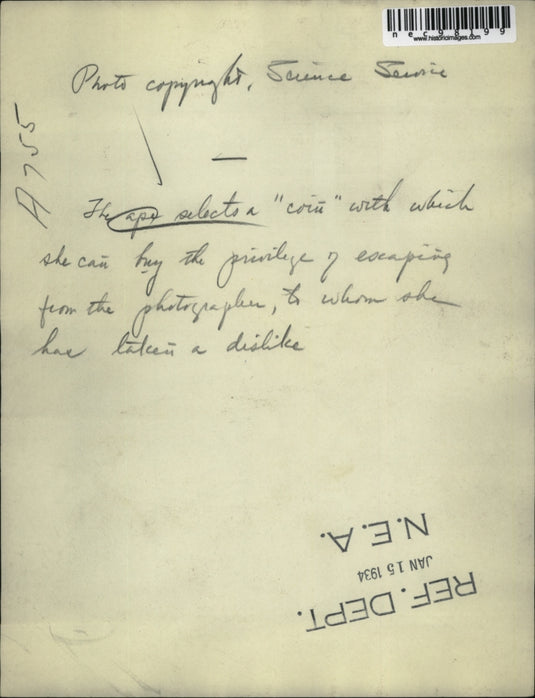 nec98199
www.historicimages.com
Photo copyright, Science Service
A755
—
The ape selects a "coin" with which
she can buy the privilege of escaping
from the photographer, to whom she
has taken a dislike
N.E.A.
JAN 15 1934
REF. DEPT.